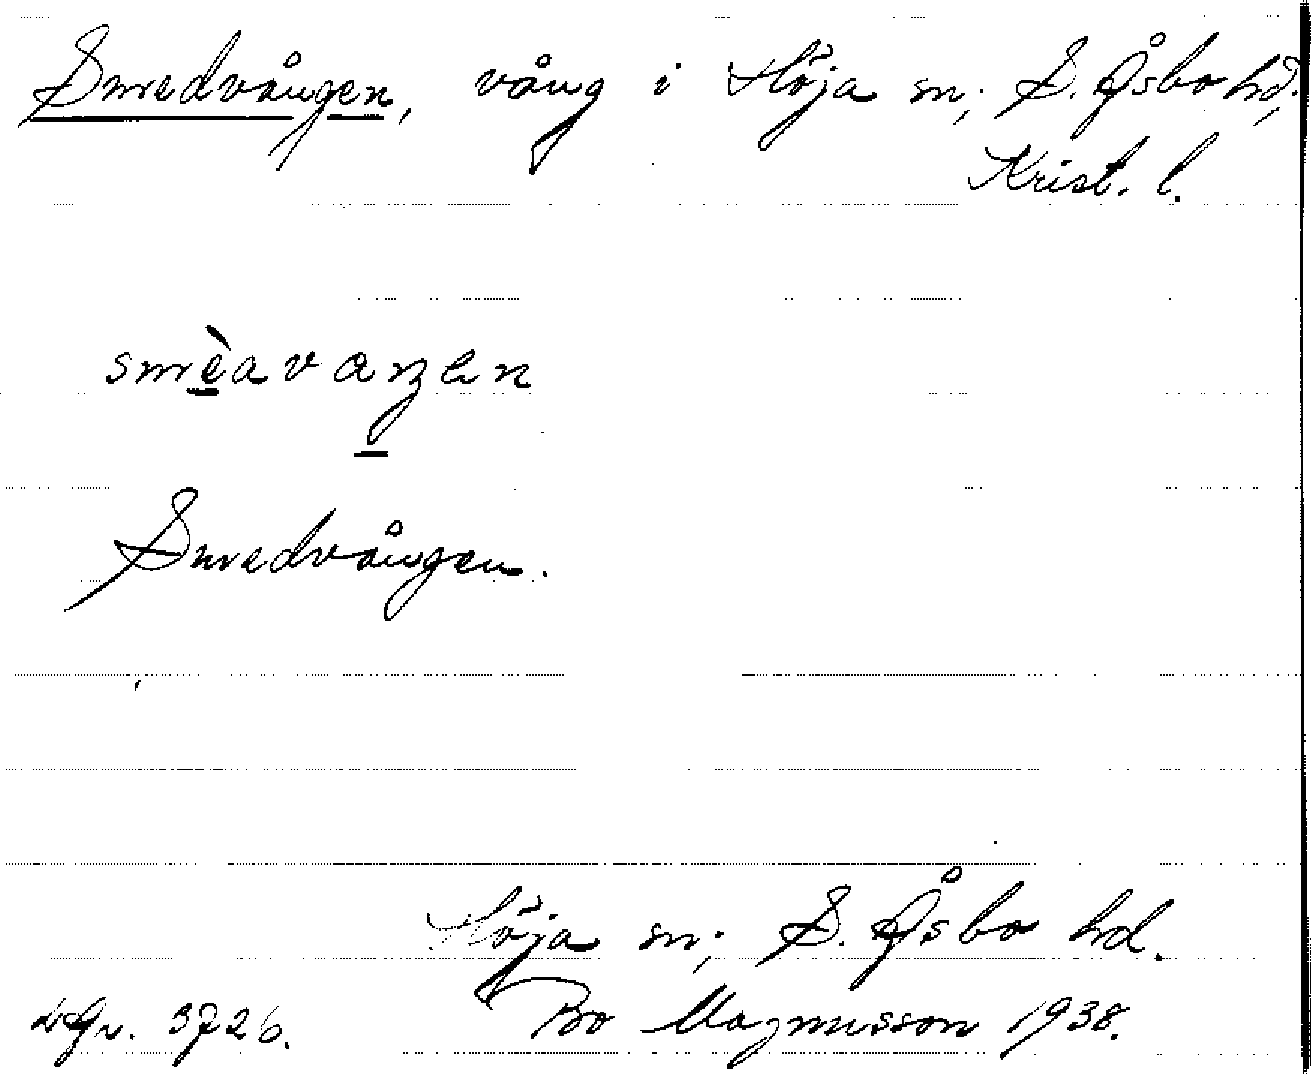 Smedvången, vång i Höja sn; S. Åsbo hd,
Krist. l.
smèavaŋen
Smedvången.
Höja sn; S. Åsbo hd.
Bo Magnusson 1938.
3726.